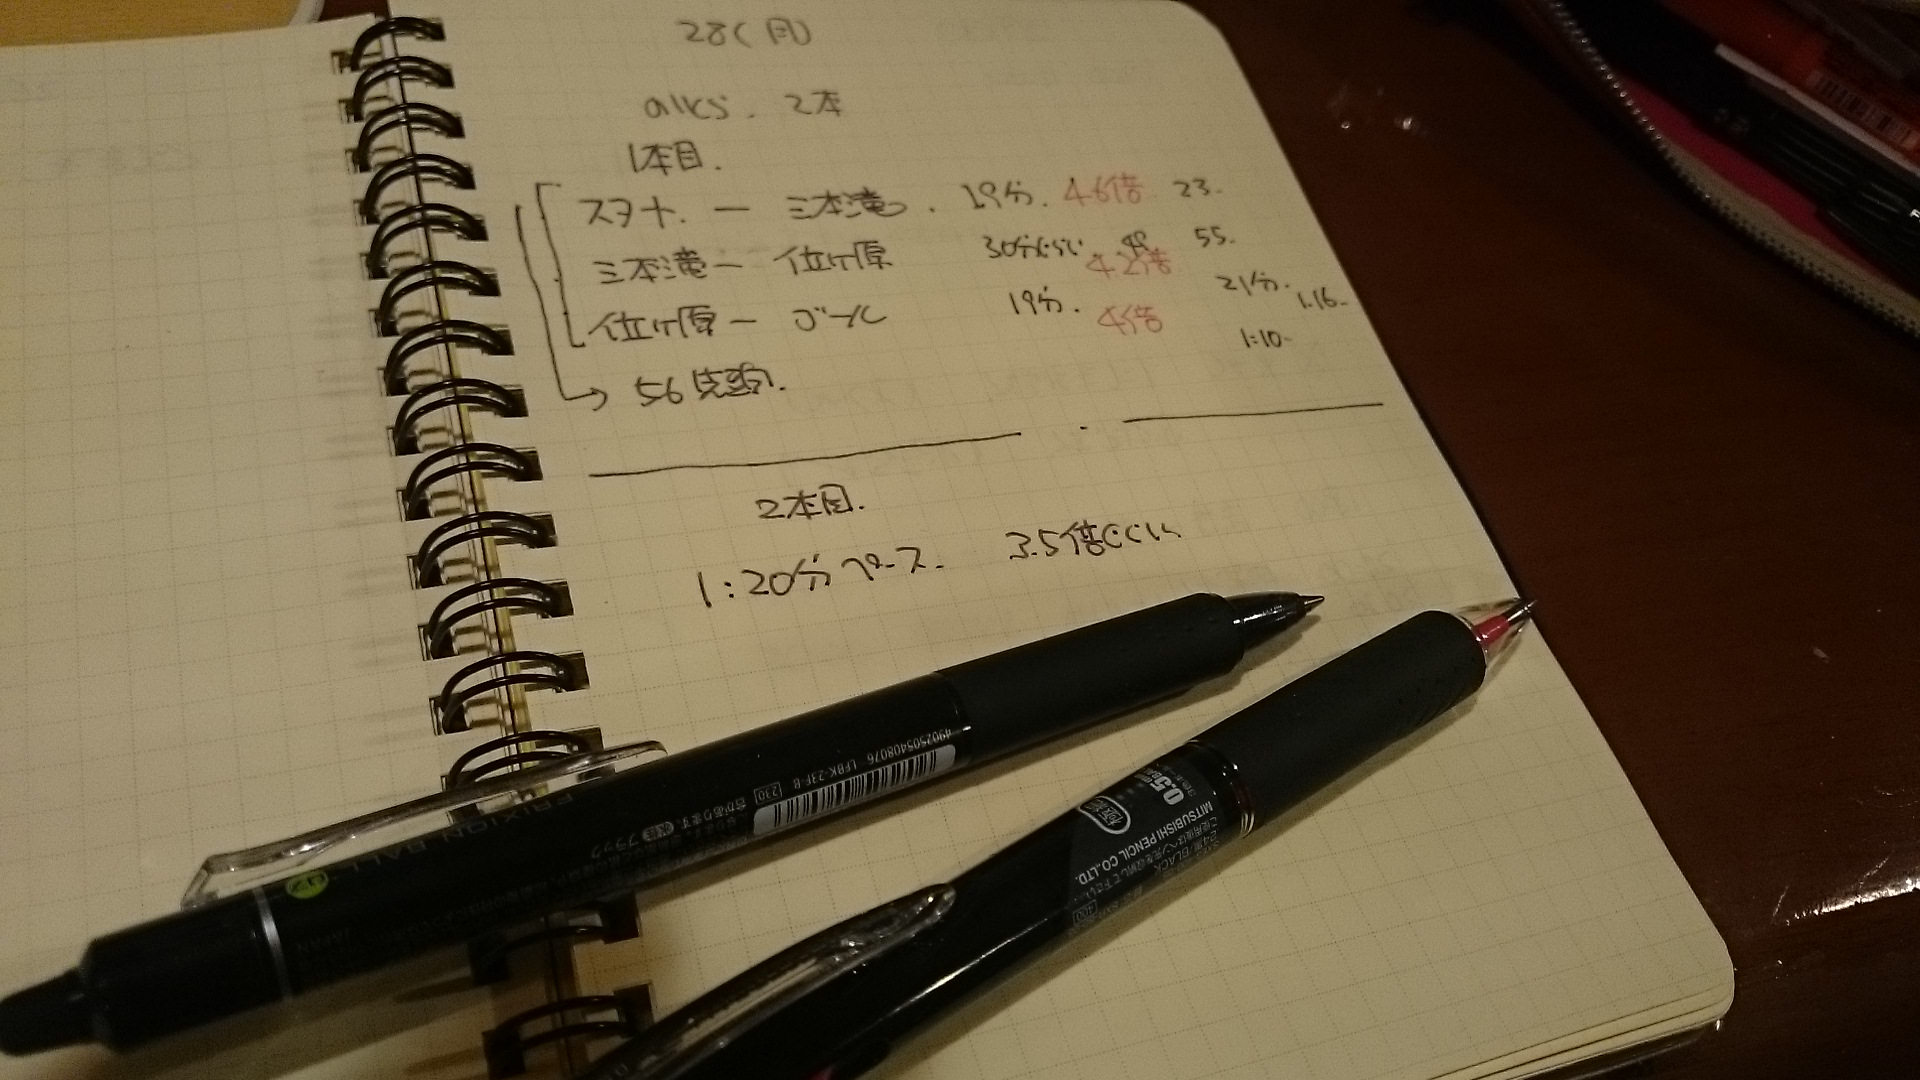 28(月)
2本
1本目.
スタート. ー 三本滝. 19分. 4.6倍 23.
三本滝ー 位ヶ原 30分くらい 49 4.2倍 55.
位ヶ原ー ゴール 19分. 4倍 21分. 1.16.
1:10-
→ 56
2本目.
1:20分ペース. 3.5倍くらい
4902505408076 LFBK-23F-B 230
FRIXION BALL
ブラック
JAPAN
0.5
MITSUBISHI PENCIL CO.,LTD.
黒/BLACK